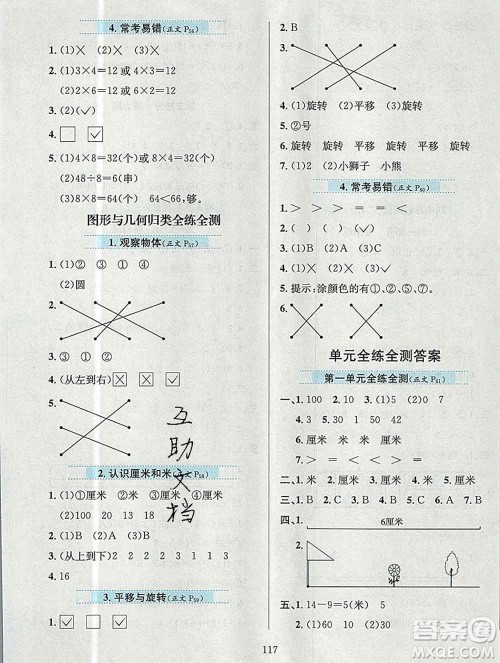 4. 常考易错(正文 P56)
1. (1)× (2)× (3)×
2. (1)3×4=12或4×3=12
(2)2×6=12或6×2=12
3. (2)(✓)
4. □ ☑
5. (1)4×8=32(个) 32(个)
(2)48÷8=6(串)
(3)8×8=64(个) 64<66,够。
图形与几何归类全练全测
1. 观察物体(正文 P57)
1. (1)② ① ③ ④
(2)圆
2.
3. ③ ① ②
4. (从左到右)☒ ☒ ☑
5.
2. 认识厘米和米(正文 P58)
1. (1)①厘米 ②米 ③厘米 ④米
(2)100 20 13 18
2. (1)③ (2)② (3)①
3. (从上到下) 2 2 2 3 3 3
4. 16
3. 平移与旋转(正文 P59)
1. ☑ □ □ ☑
2. B
3.
4. (1)旋转 (2)平移 (3)旋转
5. ②号
6. 旋转 旋转 平移 平移 平移
7. (1)2 (2)小狮子 小熊
4. 常考易错(正文 P60)
1. < > = = > <
2. ( ) ( ) (✓)
3. (1)B (2)A (3)C
4. (1)×
5. 提示:涂颜色的有①、②、⑤、⑦。
6.
单元全练全测答案
第一单元全练全测(正文 P61)
一、1. 100 10 2. 3 3. (1)5 (2)0 7
4. 20 10 1 30 50 42
5. > > = < > <
6. 厘米 米 厘米 厘米 米
二、1. × 2. × 3. × 4. ✓
三、1. B 2. C 3. B 4. B 5. A
四、1.
6厘米
2.
五、1. 14-9=5(米) 2. 30厘米
3. (1)60 10 (2)30
117
互助文档
答案圈
MXQE.COM